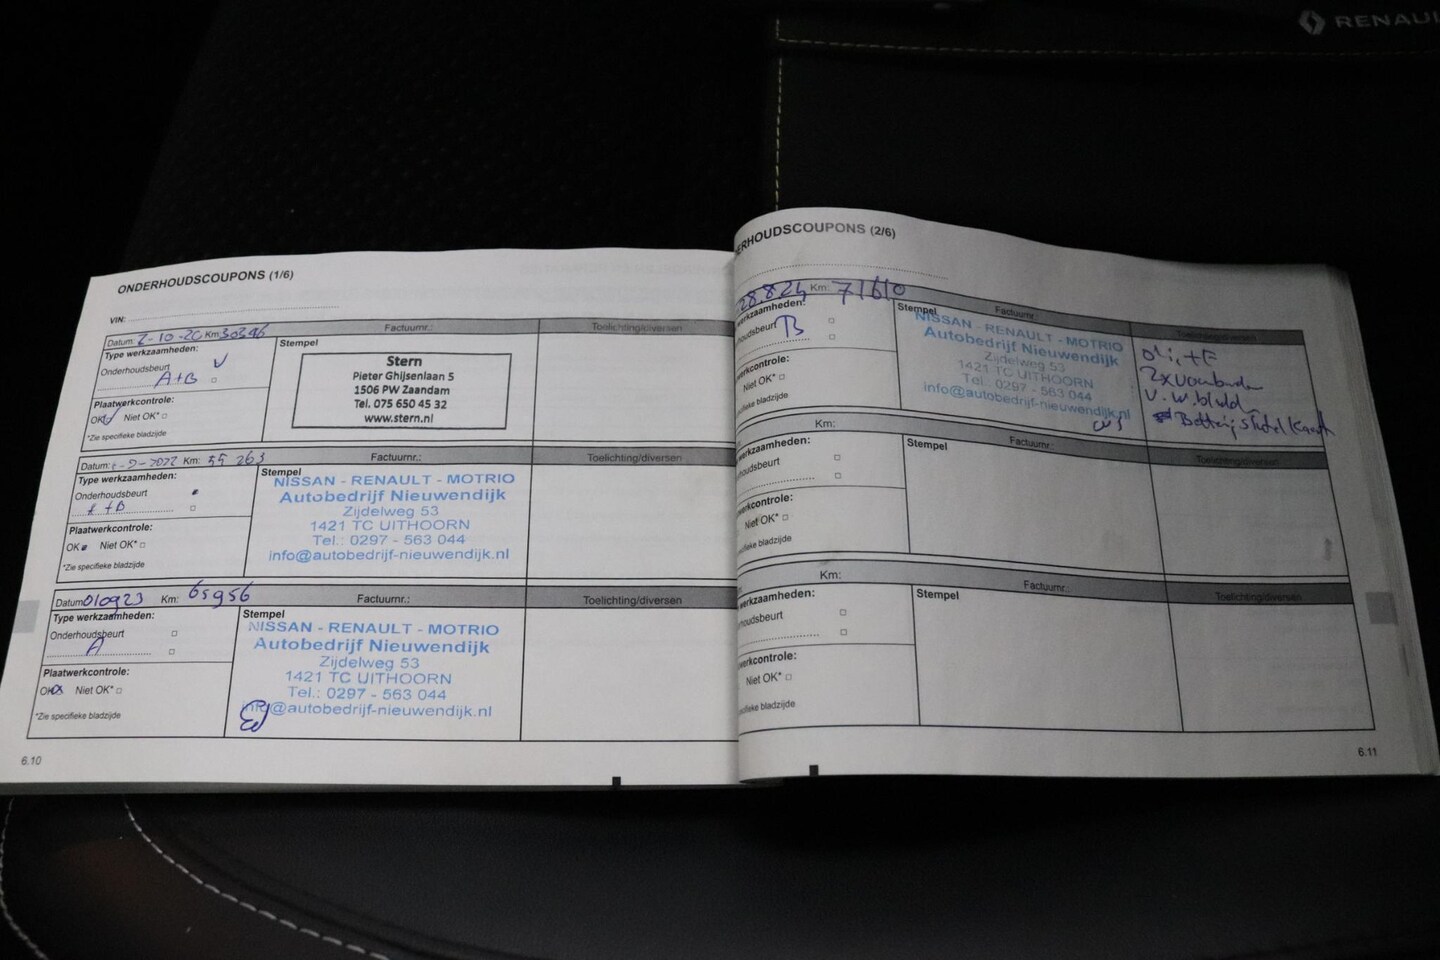 RENAUL
ONDERHOUDSCOUPONS (1/6)
VIN:
Datum: 2-10-20 Km: 30396 Factuurnr.: Toelichting/diversen
Type werkzaamheden:
Onderhoudsbeurt
A+B
Plaatwerkcontrole:
OK Niet OK*
*Zie specifieke bladzijde
Stempel
Stern
Pieter Ghijsenlaan 5
1506 PW Zaandam
Tel. 075 650 45 32
www.stern.nl
Datum: -9-2022 Km: 55 263 Factuurnr.: Toelichting/diversen
Type werkzaamheden:
Onderhoudsbeurt
A+B
Plaatwerkcontrole:
OK Niet OK*
*Zie specifieke bladzijde
Stempel
NISSAN - RENAULT - MOTRIO
Autobedrijf Nieuwendijk
Zijdelweg 53
1421 TC UITHOORN
Tel.: 0297 - 563 044
info@autobedrijf-nieuwendijk.nl
Datum: 010923 Km: 65956 Factuurnr.: Toelichting/diversen
Type werkzaamheden:
Onderhoudsbeurt
A
Plaatwerkcontrole:
OK Niet OK*
*Zie specifieke bladzijde
Stempel
NISSAN - RENAULT - MOTRIO
Autobedrijf Nieuwendijk
Zijdelweg 53
1421 TC UITHOORN
Tel.: 0297 - 563 044
info@autobedrijf-nieuwendijk.nl
6.10
ERHOUDSCOUPONS (2/6)
28.8.24 Km: 71610 Factuurnr.: Toelichting/diversen
erkzaamheden:
houdsbeurt B
erkcontrole:
Niet OK*
specifieke bladzijde
Stempel
NISSAN - RENAULT - MOTRIO
Autobedrijf Nieuwendijk
Zijdelweg 53
1421 TC UITHOORN
Tel.: 0297 - 563 044
info@autobedrijf-nieuwendijk.nl
Km: Factuurnr.: Toelichting/diversen
erkzaamheden:
houdsbeurt
erkcontrole:
Niet OK*
specifieke bladzijde
Stempel
Km: Factuurnr.: Toelichting/diversen
erkzaamheden:
rhoudsbeurt
erkcontrole:
Niet OK*
specifieke bladzijde
Stempel
6.11